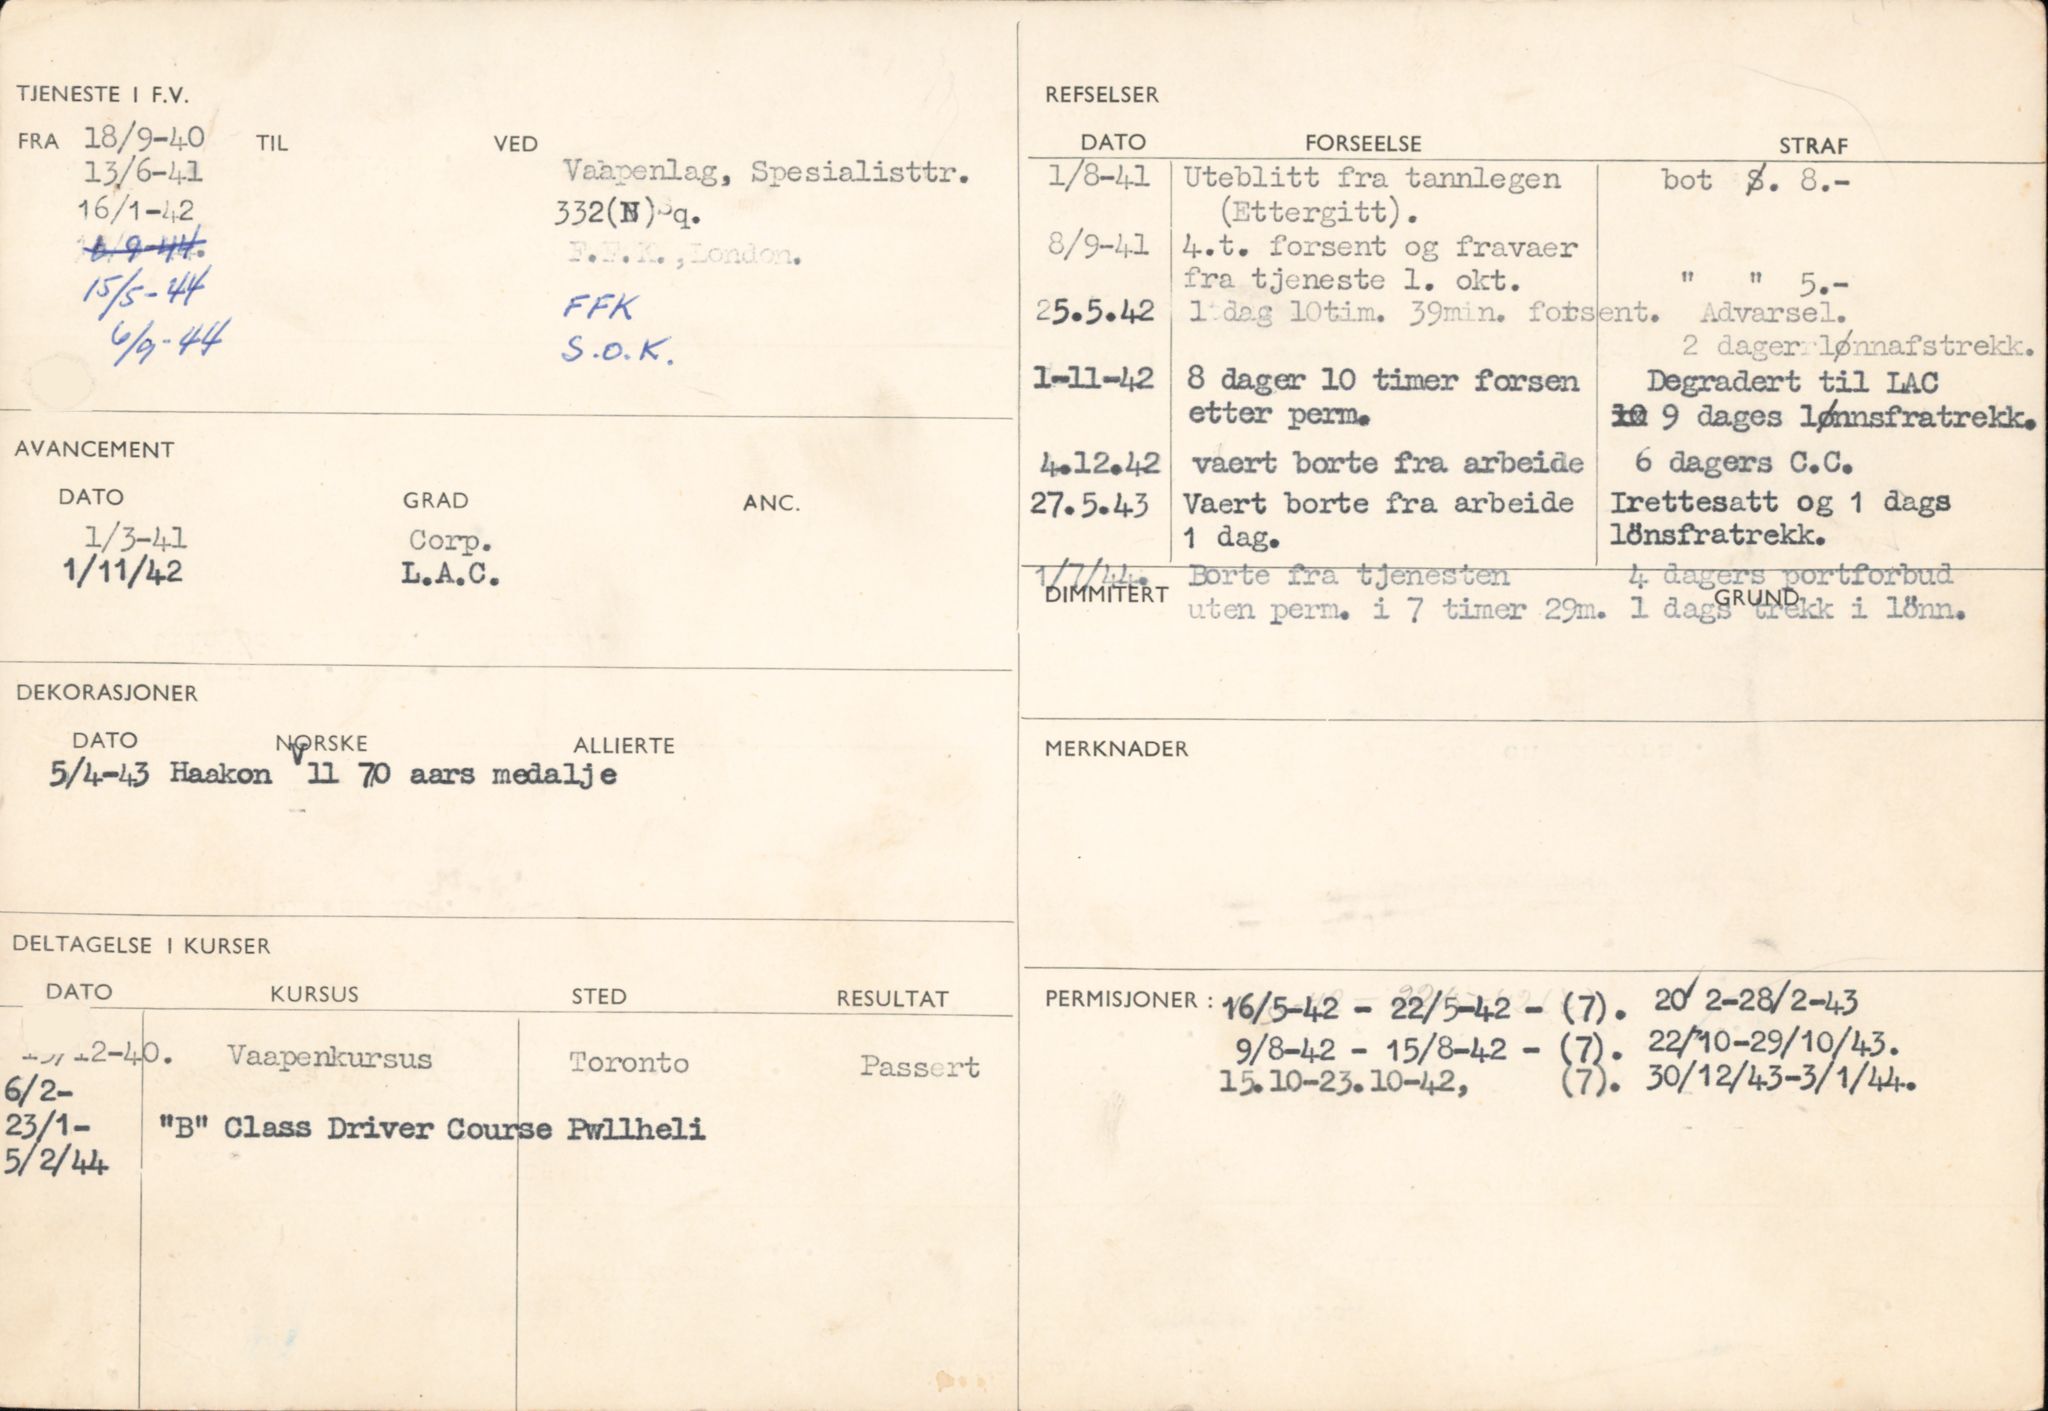 TJENESTE I F.V.
FRA 18/9-40 TIL VED
13/6-41 Vaapenlag, Spesialisttr.
16/1-42 332(N)Sq.
6/9-44. F.F.K.,London.
15/5-44 FFK
6/9-44 S.O.K.
AVANCEMENT
DATO GRAD ANC.
1/3-41 Corp.
1/11/42 L.A.C.
DEKORASJONER
DATO NORSKE ALLIERTE
5/4-43 Haakon V11 70 aars medalje
DELTAGELSE I KURSER
DATO KURSUS STED RESULTAT
12-40. Vaapenkursus Toronto Passert
6/2-
23/1- "B" Class Driver Course Pwllheli
5/2/44
REFSELSER
DATO FORSEELSE STRAF
1/8-41 Uteblitt fra tannlegen bot $. 8.-
(Ettergitt).
8/9-41 4.t. forsent og fravaer
fra tjeneste 1. okt. " " 5.-
25.5.42 1 dag 10tim. 39min. forsent. Advarsel.
2 dager lønnafstrekk.
1-11-42 8 dager 10 timer forsen Degradert til LAC
etter perm. 10 9 dages lønnsfratrekk.
4.12.42 vaert borte fra arbeide 6 dagers C.C.
27.5.43 Vaert borte fra arbeide Irettesatt og 1 dags
1 dag. lönsfratrekk.
1/7/44. Borte fra tjenesten 4 dagers portforbud
DIMMITERT GRUND
uten perm. i 7 timer 29m. 1 dags trekk i lönn.
MERKNADER
PERMISJONER: 16/5-42 - 22/5-42 - (7). 20/2-28/2-43
9/8-42 - 15/8-42 - (7). 22/10-29/10/43.
15.10-23.10-42, (7). 30/12/43-3/1/44.